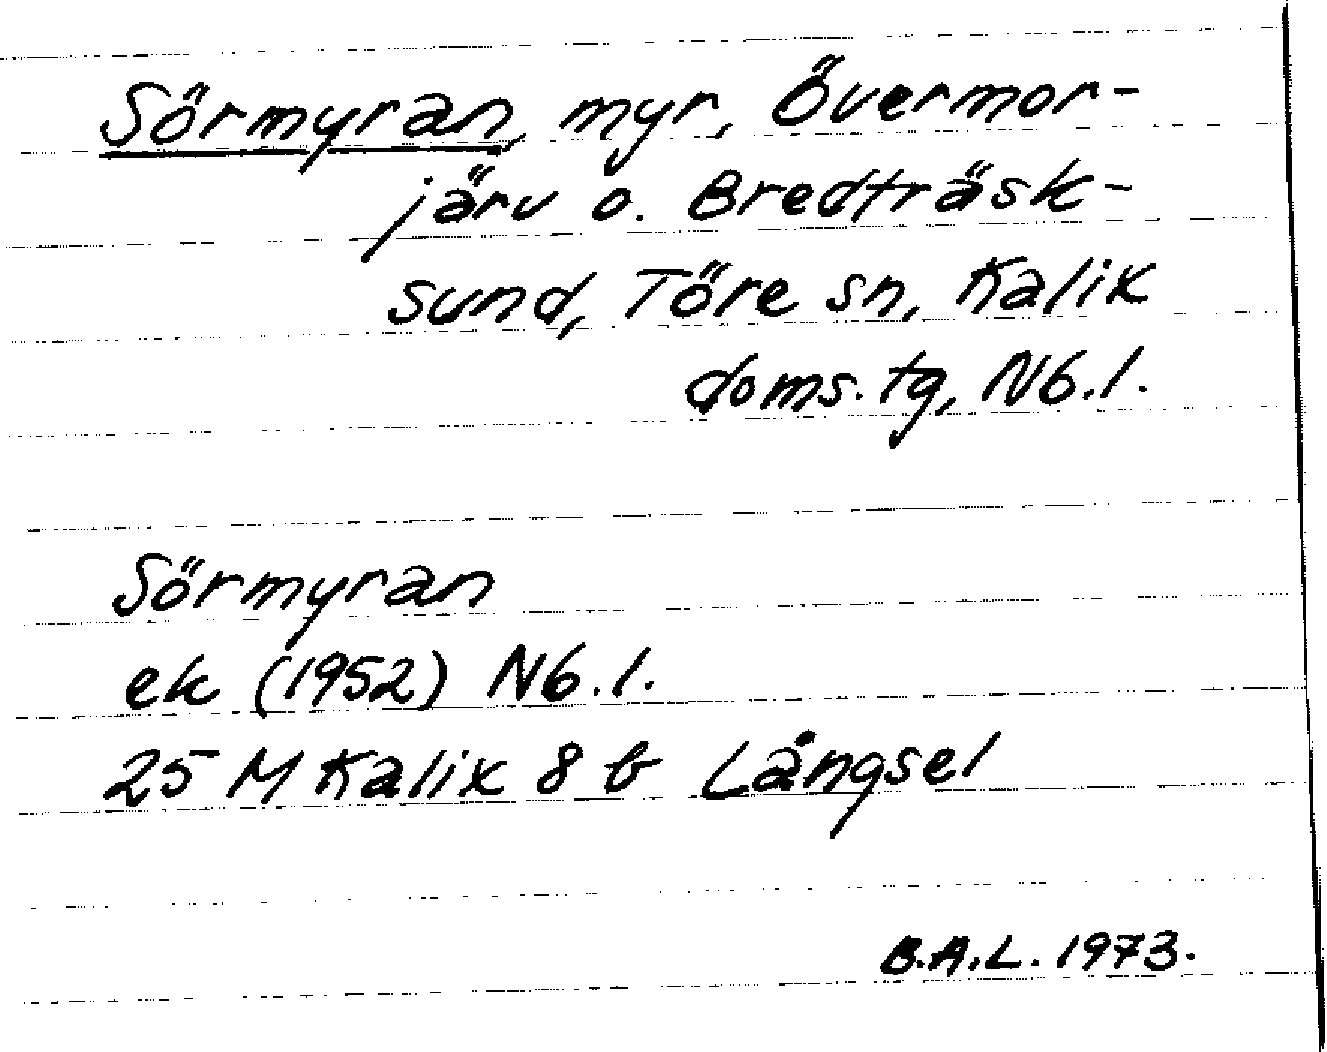 Sörmyran, myr, Övermor-
järv o. Bredträsk-
sund, Töre sn, Kalix
doms. tg, Nb. l.
Sörmyran
ek (1952) Nb. l.
25 M Kalix 8 b Långsel
B.A.L. 1973.